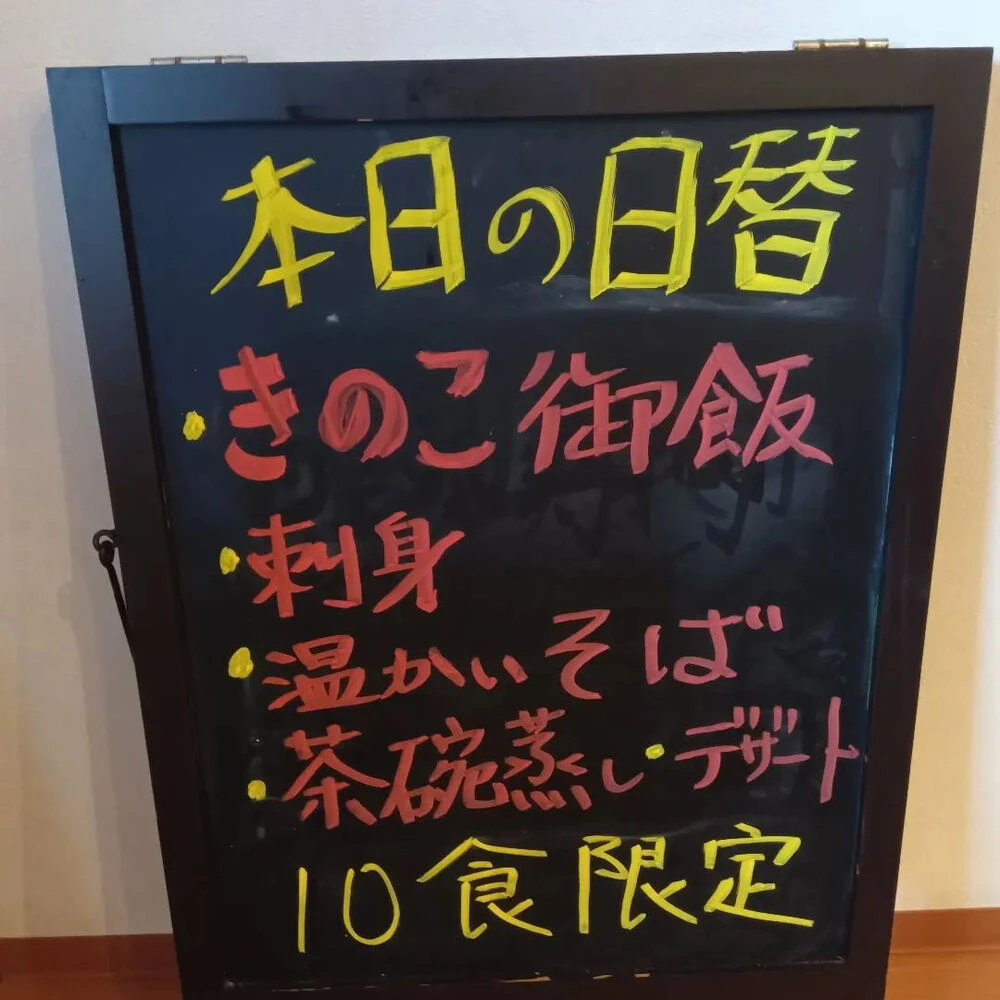 本日の日替
・きのこ御飯
・刺身
・温かいそば
・茶碗蒸し・デザート
10食限定